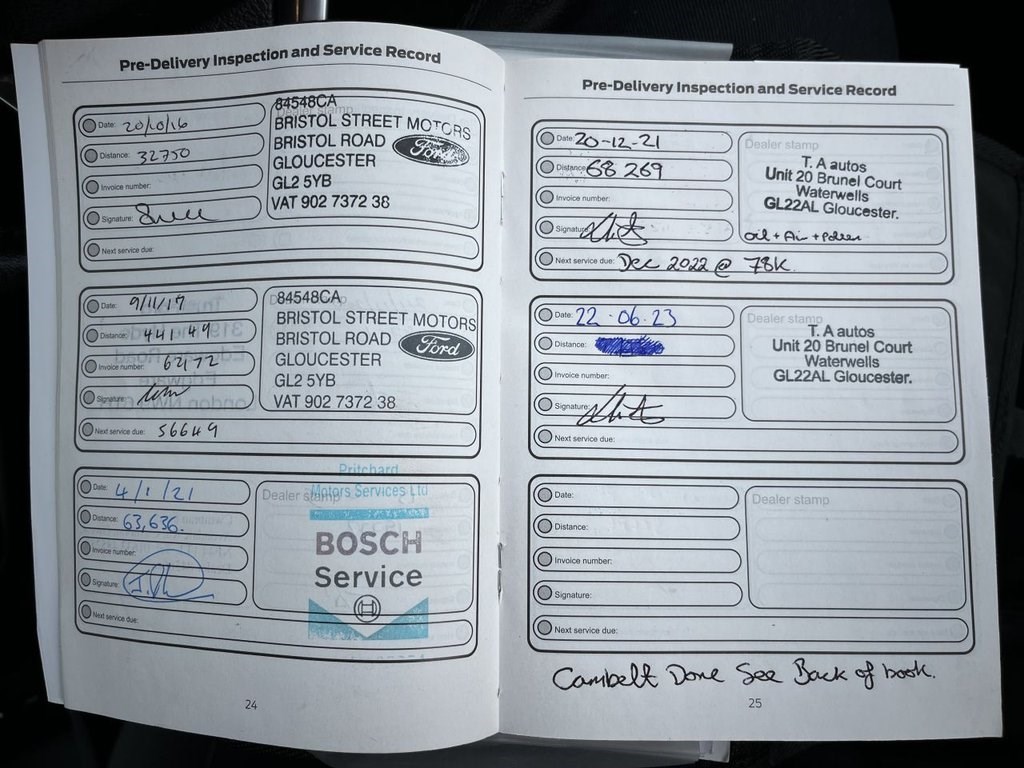 Pre-Delivery Inspection and Service Record
Date: 20/10/16
Distance: 32750
Invoice number:
Signature:
Next service due:
Dealer stamp
84548CA
BRISTOL STREET MOTORS
BRISTOL ROAD
Ford
GLOUCESTER
GL2 5YB
VAT 902 7372 38
Date: 9/11/17
Distance: 44149
Invoice number: 62172
Signature:
Next service due: 56649
84548CA
BRISTOL STREET MOTORS
BRISTOL ROAD
Ford
GLOUCESTER
GL2 5YB
VAT 902 7372 38
Date: 4/1/21
Distance: 63,636.
Invoice number:
Signature:
Next service due:
Dealer stamp
Pritchard
Motors Services Ltd
BOSCH
Service
24
Pre-Delivery Inspection and Service Record
Date: 20-12-21
Distance: 68 269
Invoice number:
Signature:
Next service due: Dec 2022 @ 78K.
Dealer stamp
T. A autos
Unit 20 Brunel Court
Waterwells
GL22AL Gloucester.
oil + Air + Pollen
Date: 22-06-23
Distance:
Invoice number:
Signature:
Next service due:
Dealer stamp
T. A autos
Unit 20 Brunel Court
Waterwells
GL22AL Gloucester.
Date:
Distance:
Invoice number:
Signature:
Next service due:
Dealer stamp
Cambelt Done See Back of book.
25